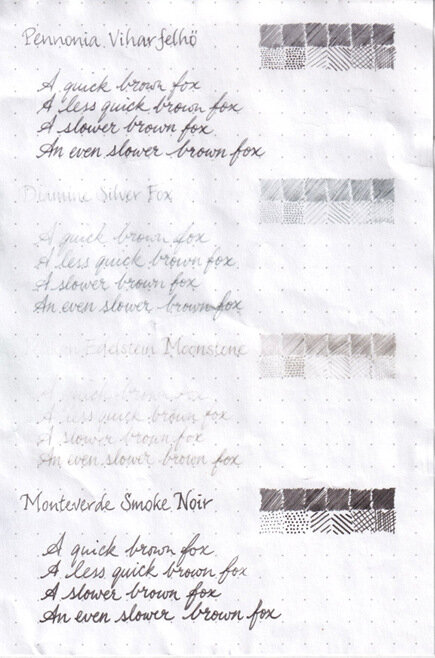 Pennonia Viharfelhő
A quick brown fox
A less quick brown fox
A slower brown fox
An even slower brown fox
Diamine Silver Fox
A quick brown fox
A less quick brown fox
A slower brown fox
An even slower brown fox
Edelstein Moonstone
A quick brown fox
A less quick brown fox
A slower brown fox
An even slower brown fox
Monteverde Smoke Noir
A quick brown fox
A less quick brown fox
A slower brown fox
An even slower brown fox